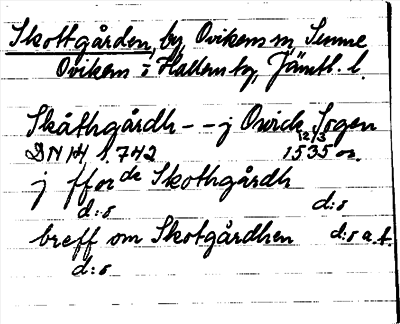 Skottgården, by, Ovikens sn, Sunne
Ovikens o Hallens tg, Jämtl. l.
Skåthgårdh - - j Owick Sogen
DN 14, 1. 742 12/3 1535 or.
j fforde Skothgårdh
d:o d:o
breff om Skotgårdhen d:o a.t.
d:o